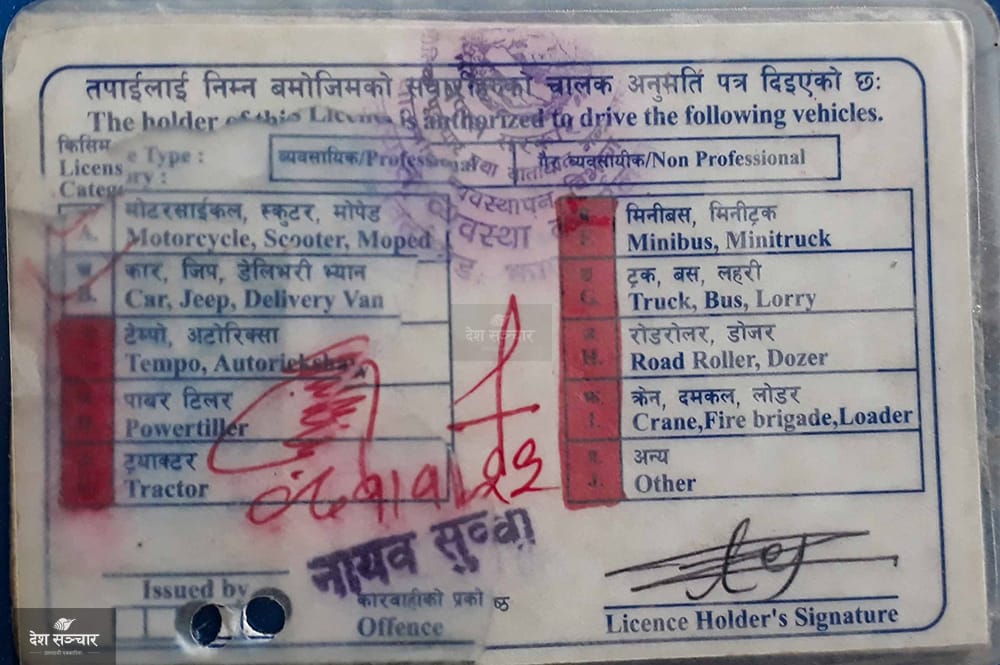 तपाईलाई निम्न बमोजिमको चालक अनुमति पत्र दिइएको छः
The holder of this License is authorized to drive the following vehicles.
किसिम
License Type :
व्यवसायिक/Professional
गैर व्यवसायीक/Non Professional
Category :
A.
मोटरसाईकल, स्कुटर, मोपेड
Motorcycle, Scooter, Moped
B.
कार, जिप, डेलिभरी भ्यान
Car, Jeep, Delivery Van
टेम्पो, अटोरिक्सा
Tempo, Autorickshaw
पाबर टिलर
Powertiller
ट्रयाक्टर
Tractor
मिनीबस, मिनीट्रक
Minibus, Minitruck
G.
ट्रक, बस, लहरी
Truck, Bus, Lorry
H.
रोडरोलर, डोजर
Road Roller, Dozer
I.
क्रेन, दमकल, लोडर
Crane,Fire brigade,Loader
J.
अन्य
Other
देश सञ्चार
नायव सुब्बा
Issued by
कारवाहीको प्रको
Offence
Licence Holder's Signature
देश सञ्चार